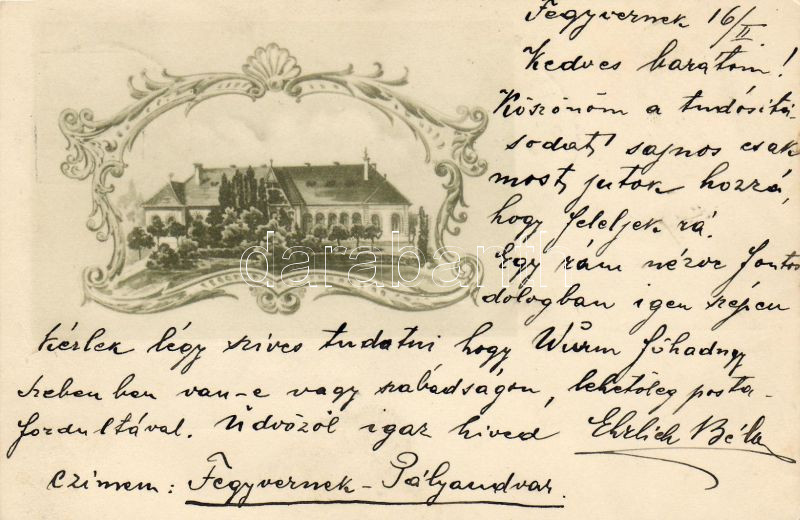 Fegyvernek 16/II
Kedves barátom!
Köszönöm a tudósitá-
sodat, sajnos csak
most jutok hozzá,
hogy feleljek rá.
Egy rám nézve fontos
dologban igen szépen
kérlek légy szives tudatni hogy Wurm főhadnagy
Szebenben van-e vagy szabadságon, lehetőleg posta-
fordultával. Üdvözöl igaz hived Ehrlich Béla
Czimem: Fegyvernek-Pályaudvar.
darabanth